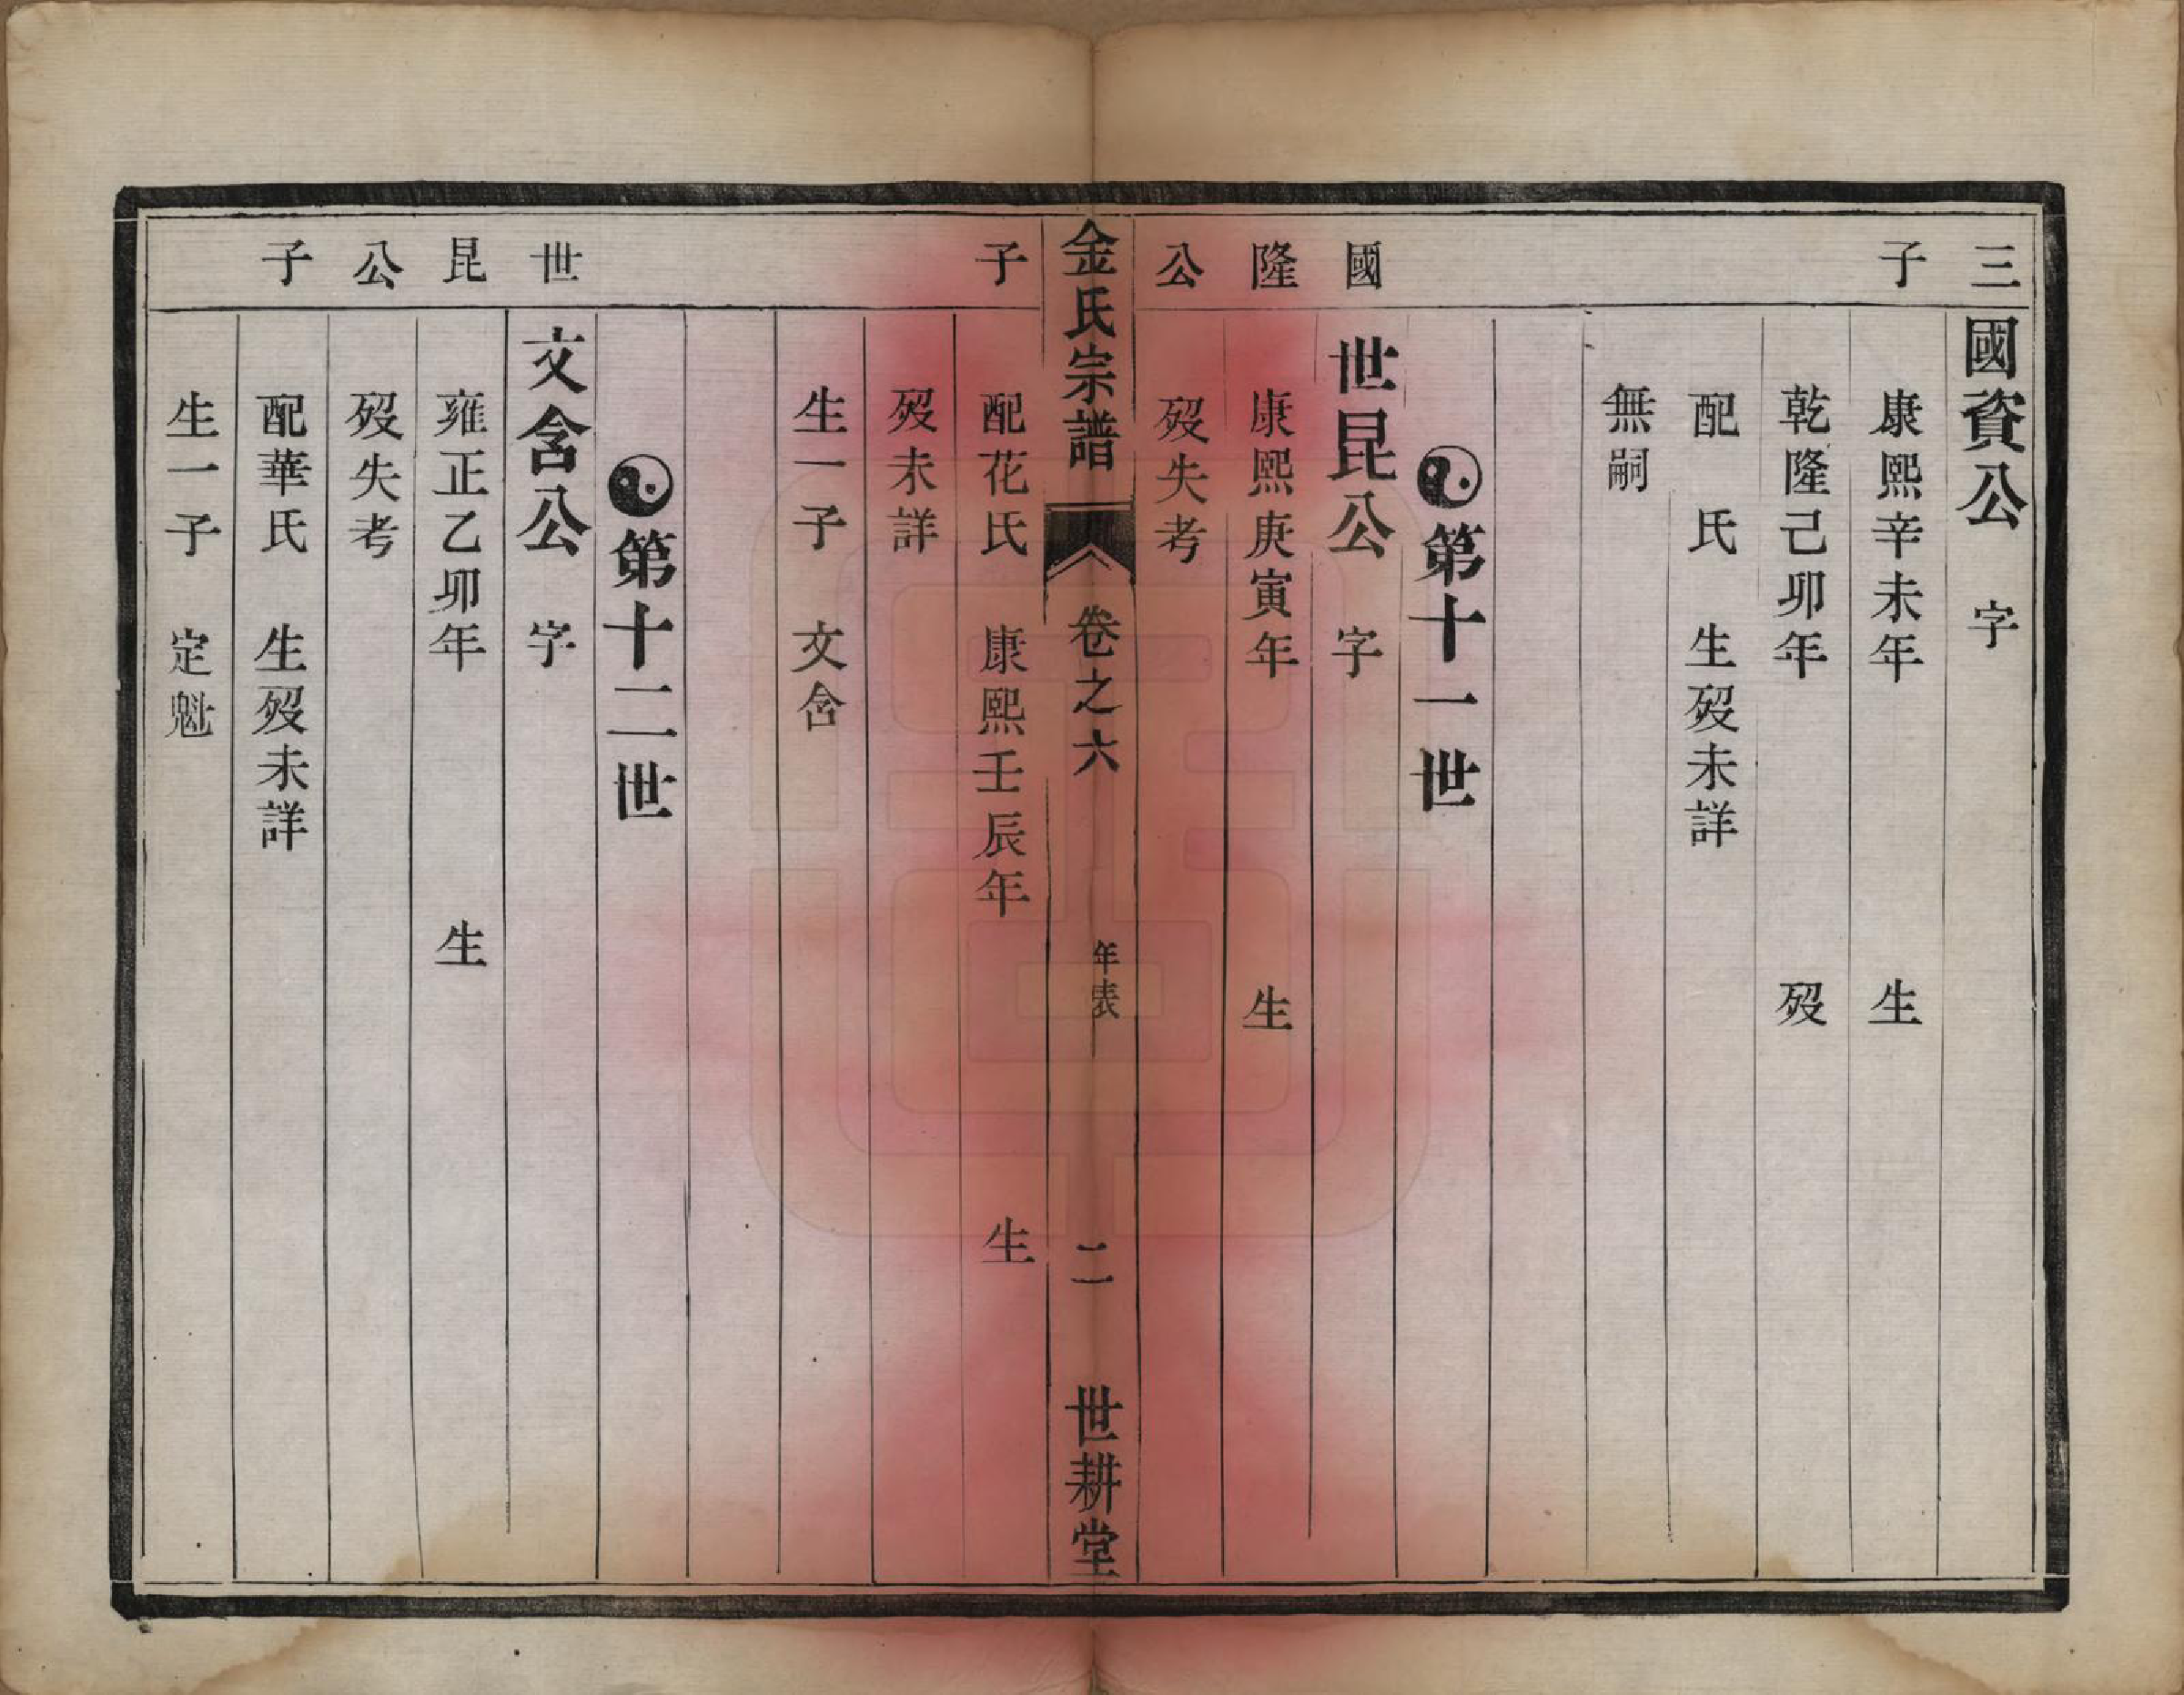 三子
國資公 字
康熙辛未年 生
乾隆己卯年 歿
配 氏 生歿未詳
無嗣
第十一世
國隆公
世昆公 字
康熙庚寅年 生
歿失考
金氏宗譜 卷之六 年表 二 世耕堂
子
配花氏 康熙壬辰年 生
歿未詳
生一子 文含
第十二世
世昆公子
文含公 字
雍正乙卯年 生
歿失考
配華氏 生歿未詳
生一子 定魁